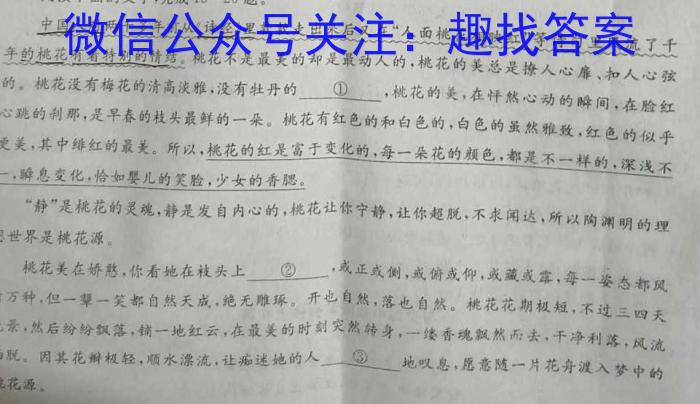 微信公众号关注：趣找答案
完成18~20题。
中国
里
走出来后
在“人面桃
等
里
流了千
年的桃花有着特别的情结。桃花不是最美的却是最动人的，桃花的美总是撩人心扉、扣人心弦
的。桃花没有梅花的清高淡雅，没有牡丹的 ① ，桃花的美，在怦然心动的瞬间，在脸红
心跳的刹那，是早春的枝头最鲜的一朵。桃花有红色的和白色的，白色的虽然雅致，红色的似乎
更美，其中绯红的最美。所以，桃花的红是富于变化的，每一朵花的颜色，都是不一样的，深浅不
一，瞬息变化，恰如婴儿的笑脸，少女的香腮。
“静”是桃花的灵魂，静是发自内心的，桃花让你宁静，让你超脱，不求闻达，所以陶渊明的理
想世界是桃花源。
桃花美在娇憨，你看她在枝头上 ② ，或正或侧，或俯或仰，或藏或露，每一姿态都风
情万种，但一颦一笑都自然天成，绝无雕琢。开也自然，落也自然。桃花花期极短，不过三四天
光景，然后纷纷飘落，铺一地红云，在最美的时刻突然转身，一缕香魂飘然而去，干净利落，风流
洒脱。因其花瓣极轻，顺水漂流，让痴迷她的人 ③ 地叹息，愿意随一片花舟渡入梦中的
桃花源。